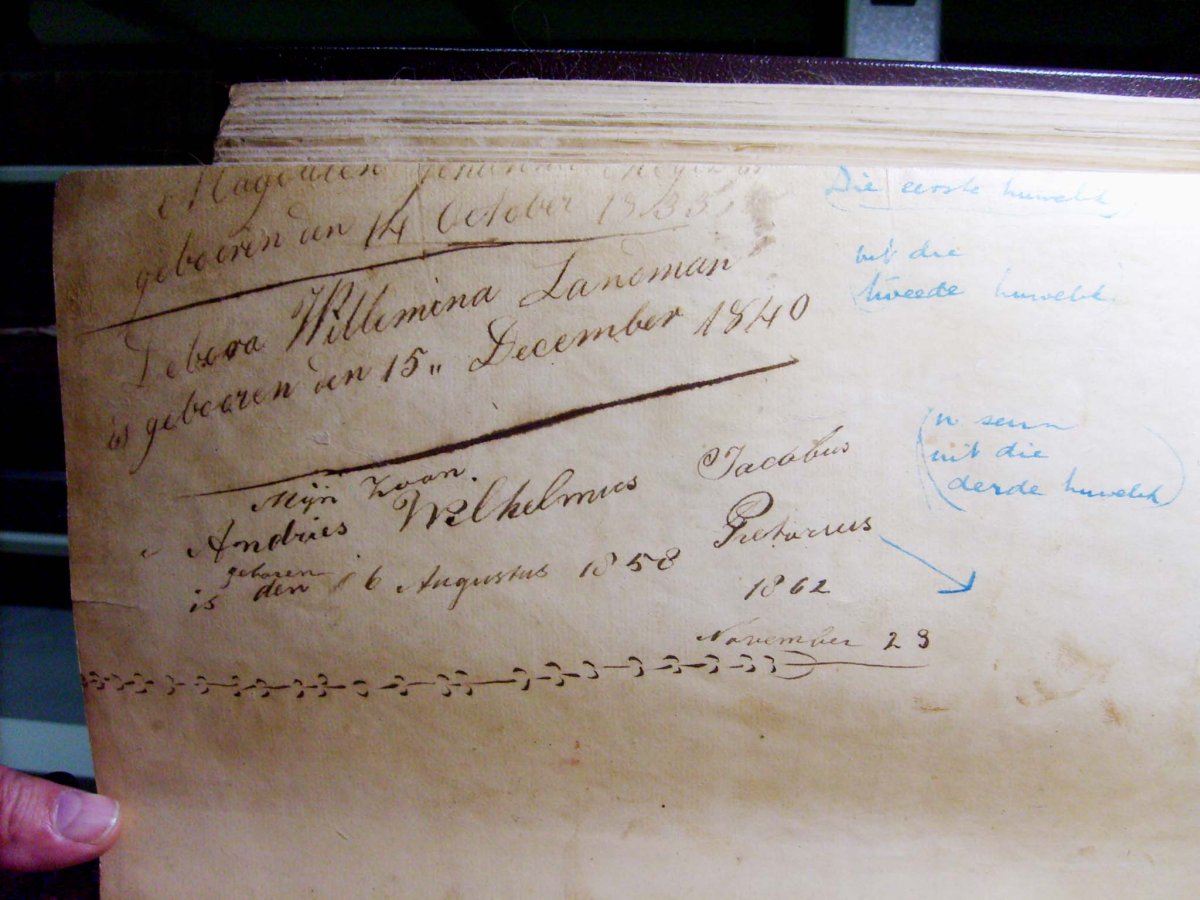 geboeren den 14 October 1833
Debora Willemina Landman
is geboeren den 15 „ December 1840
Mijn Zoon.
Andries Wilhelmus Jacobus
Pretorius
geboren
is den 16 Augustus 1858
1862
November 23
Die eerste huwelik
uit die
tweede huwelik
'n seun
uit die
derde huwelik